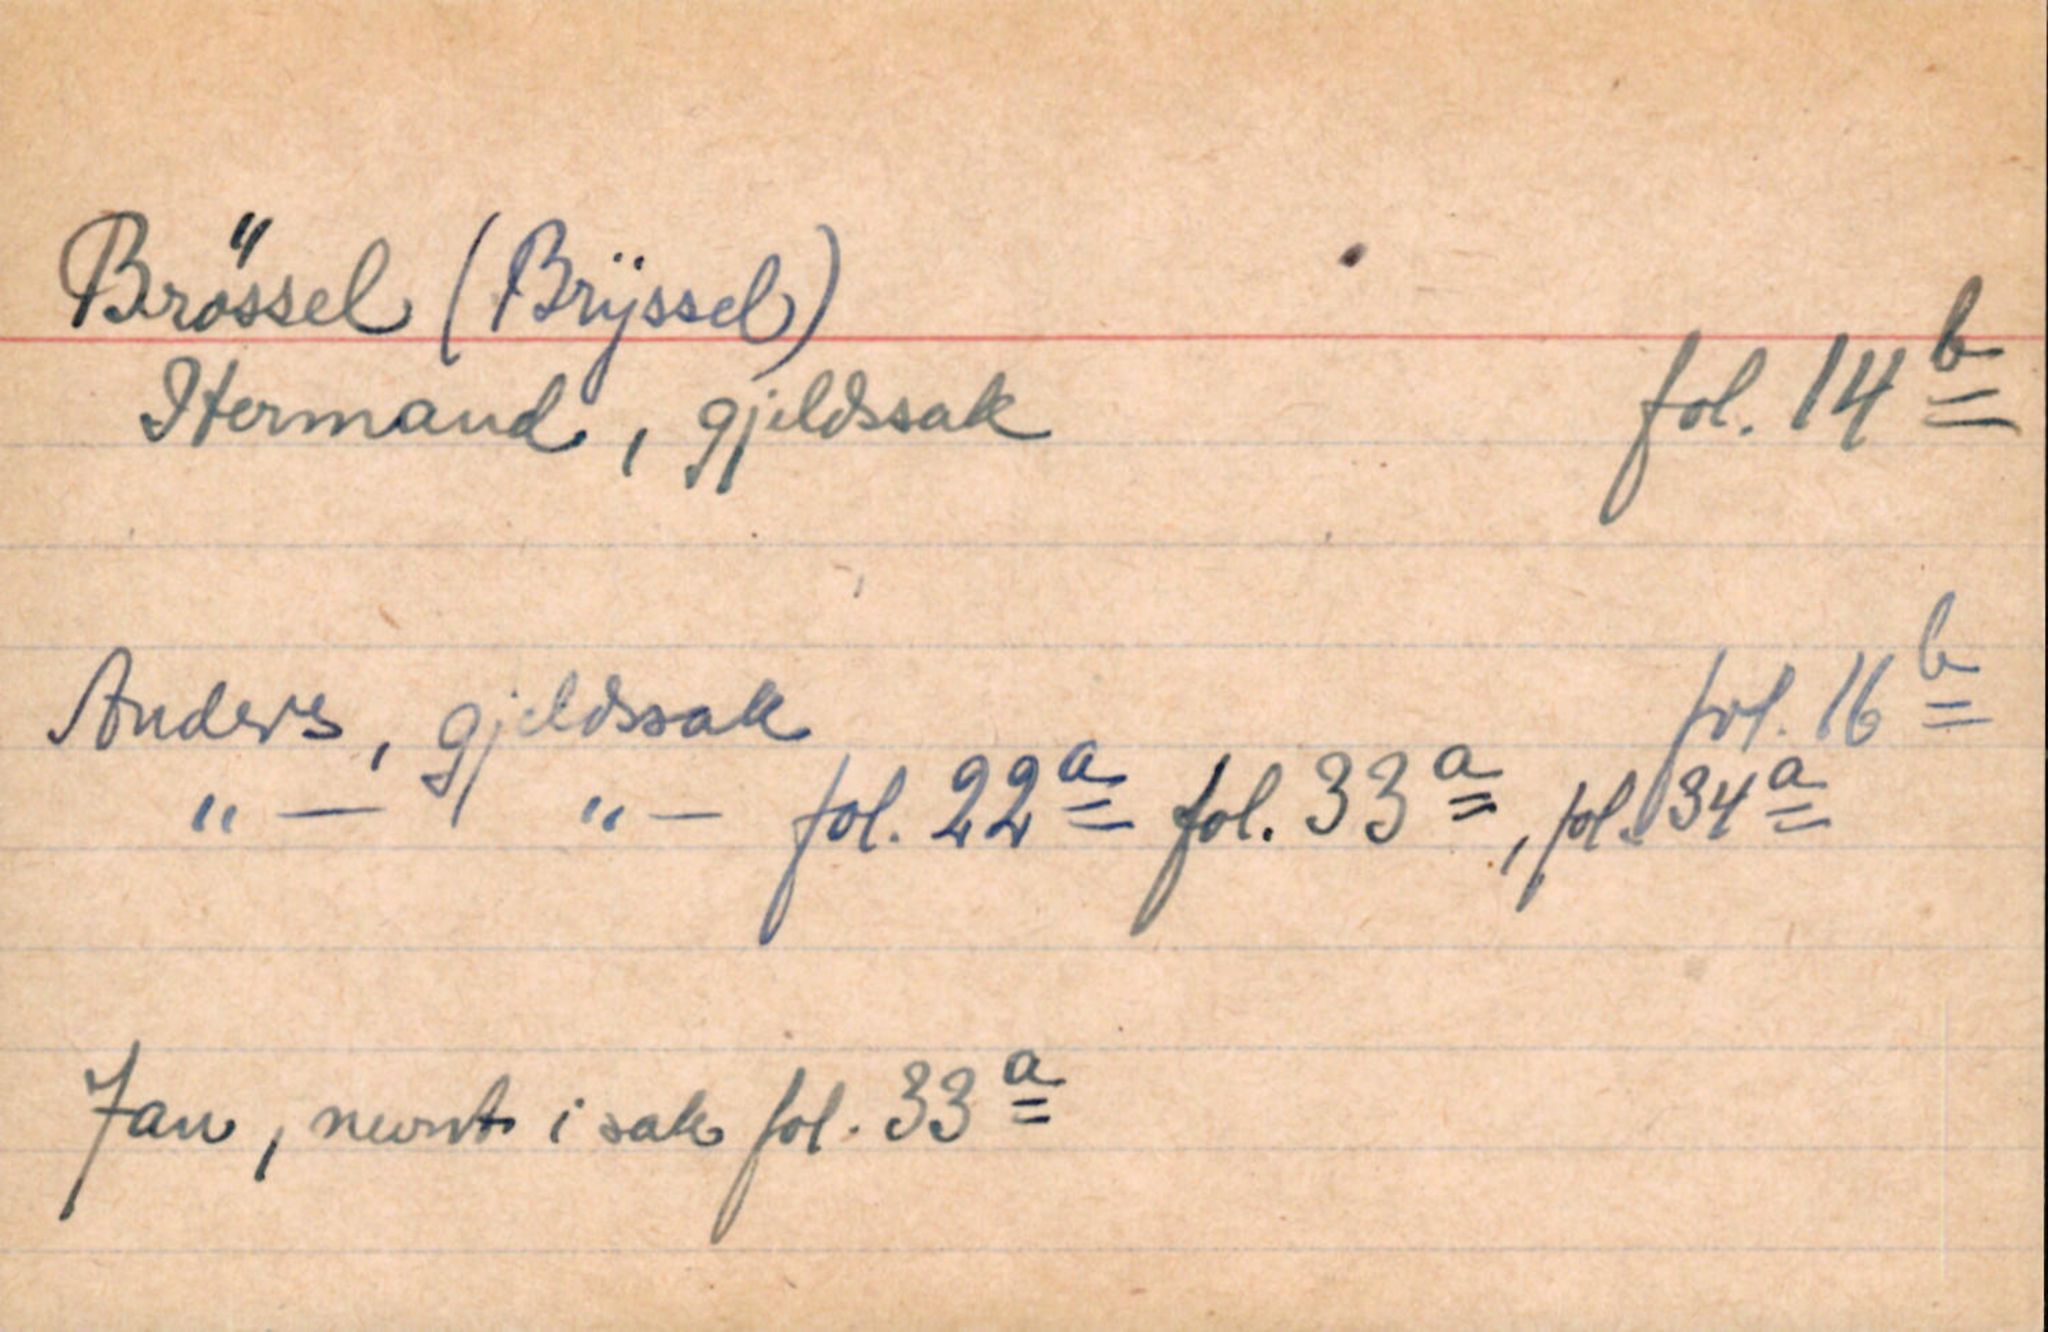 Brössel (Brÿssel)
Hermand, gjeldssak fol. 14 b
Anders, gjeldssak fol. 16 b
" — " — fol. 22 a fol. 33 a, fol. 34 a
Jan, nevnt i sak fol. 33 a